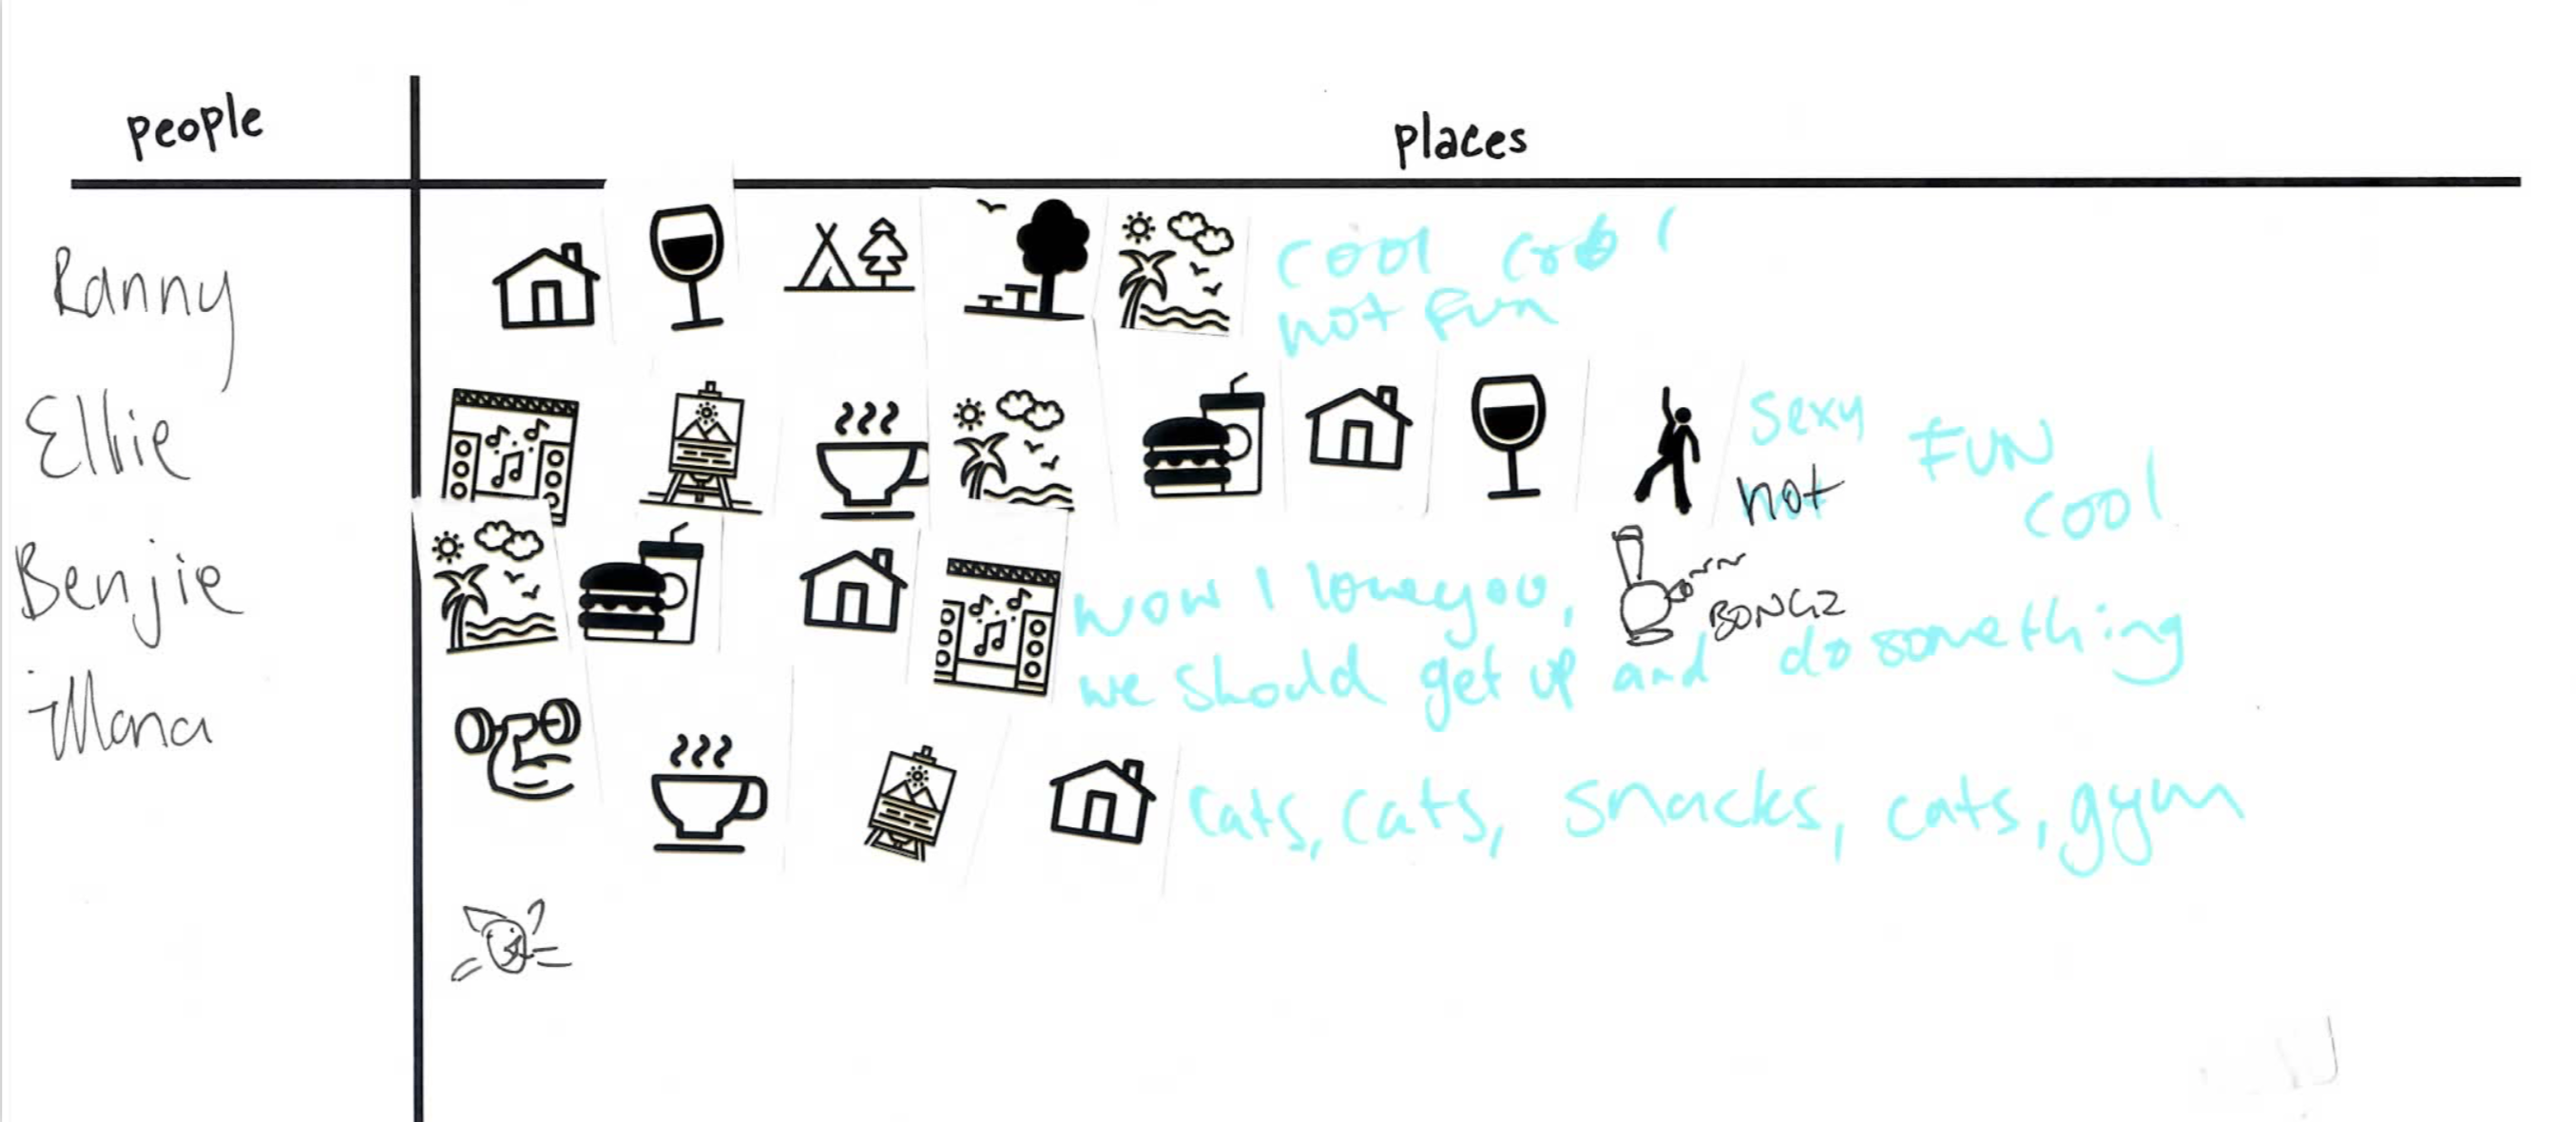 people
places
Ranny
cool cool
not fun
Ellie
sexy
FUN
not
cool
Benjie
wow I love you,
BONGZ
we should get up and do something
Mona
cats, cats, snacks, cats, gym